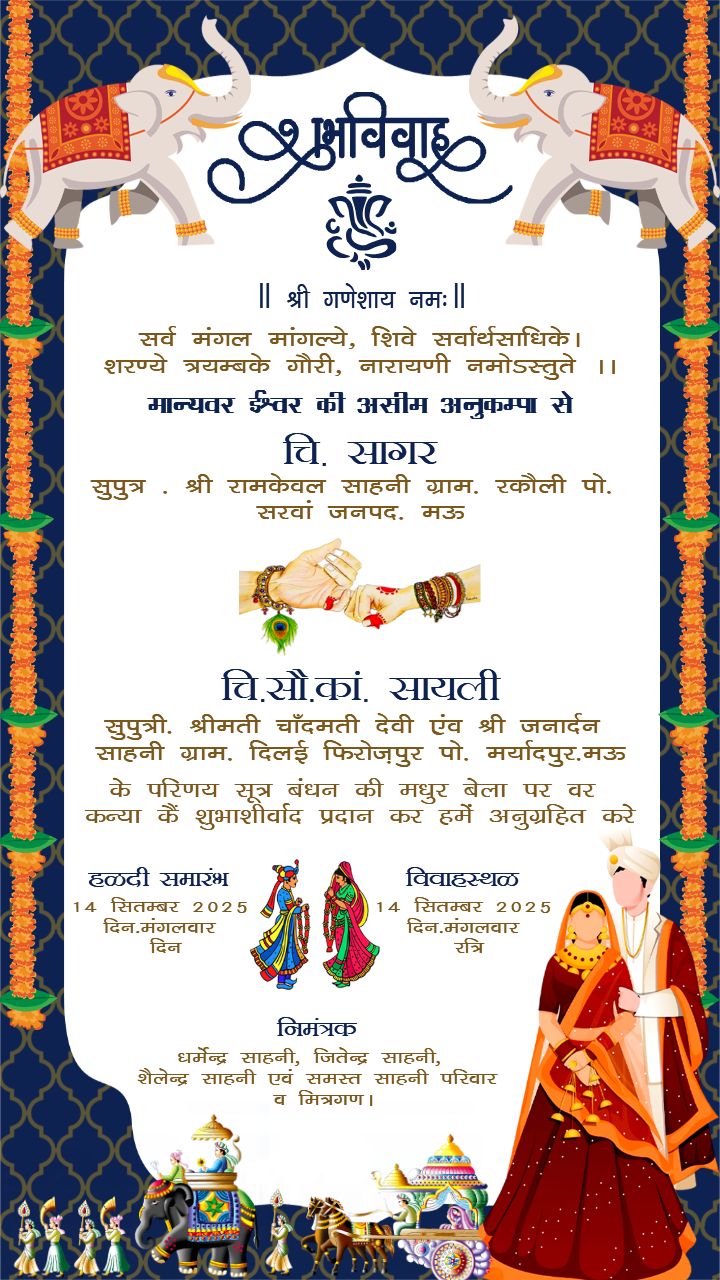 शुभविवाह
|| श्री गणेशाय नमः ||
सर्व मंगल मांगल्ये, शिवे सर्वार्थसाधिके।
शरण्ये त्रयम्बके गौरी, नारायणी नमोऽस्तुते ।।
मान्यवर ईश्वर की असीम अनुकम्पा से
चि. सागर
सुपुत्र . श्री रामकेवल साहनी ग्राम. रकौली पो.
सरवां जनपद. मऊ
चि.सौ.कां. सायली
सुपुत्री. श्रीमती चाँदमती देवी एंव श्री जनार्दन
साहनी ग्राम. दिलई फिरोज़पुर पो. मर्यादपुर.मऊ
के परिणय सूत्र बंधन की मधुर बेला पर वर
कन्या कैं शुभाशीर्वाद प्रदान कर हमें अनुग्रहित करे
हळदी समारंभ
14 सितम्बर 2025
दिन.मंगलवार
दिन
विवाहस्थळ
14 सितम्बर 2025
दिन.मंगलवार
रत्रि
निमंत्रक
धर्मेन्द्र साहनी, जितेन्द्र साहनी,
शैलेन्द्र साहनी एवं समस्त साहनी परिवार
व मित्रगण।